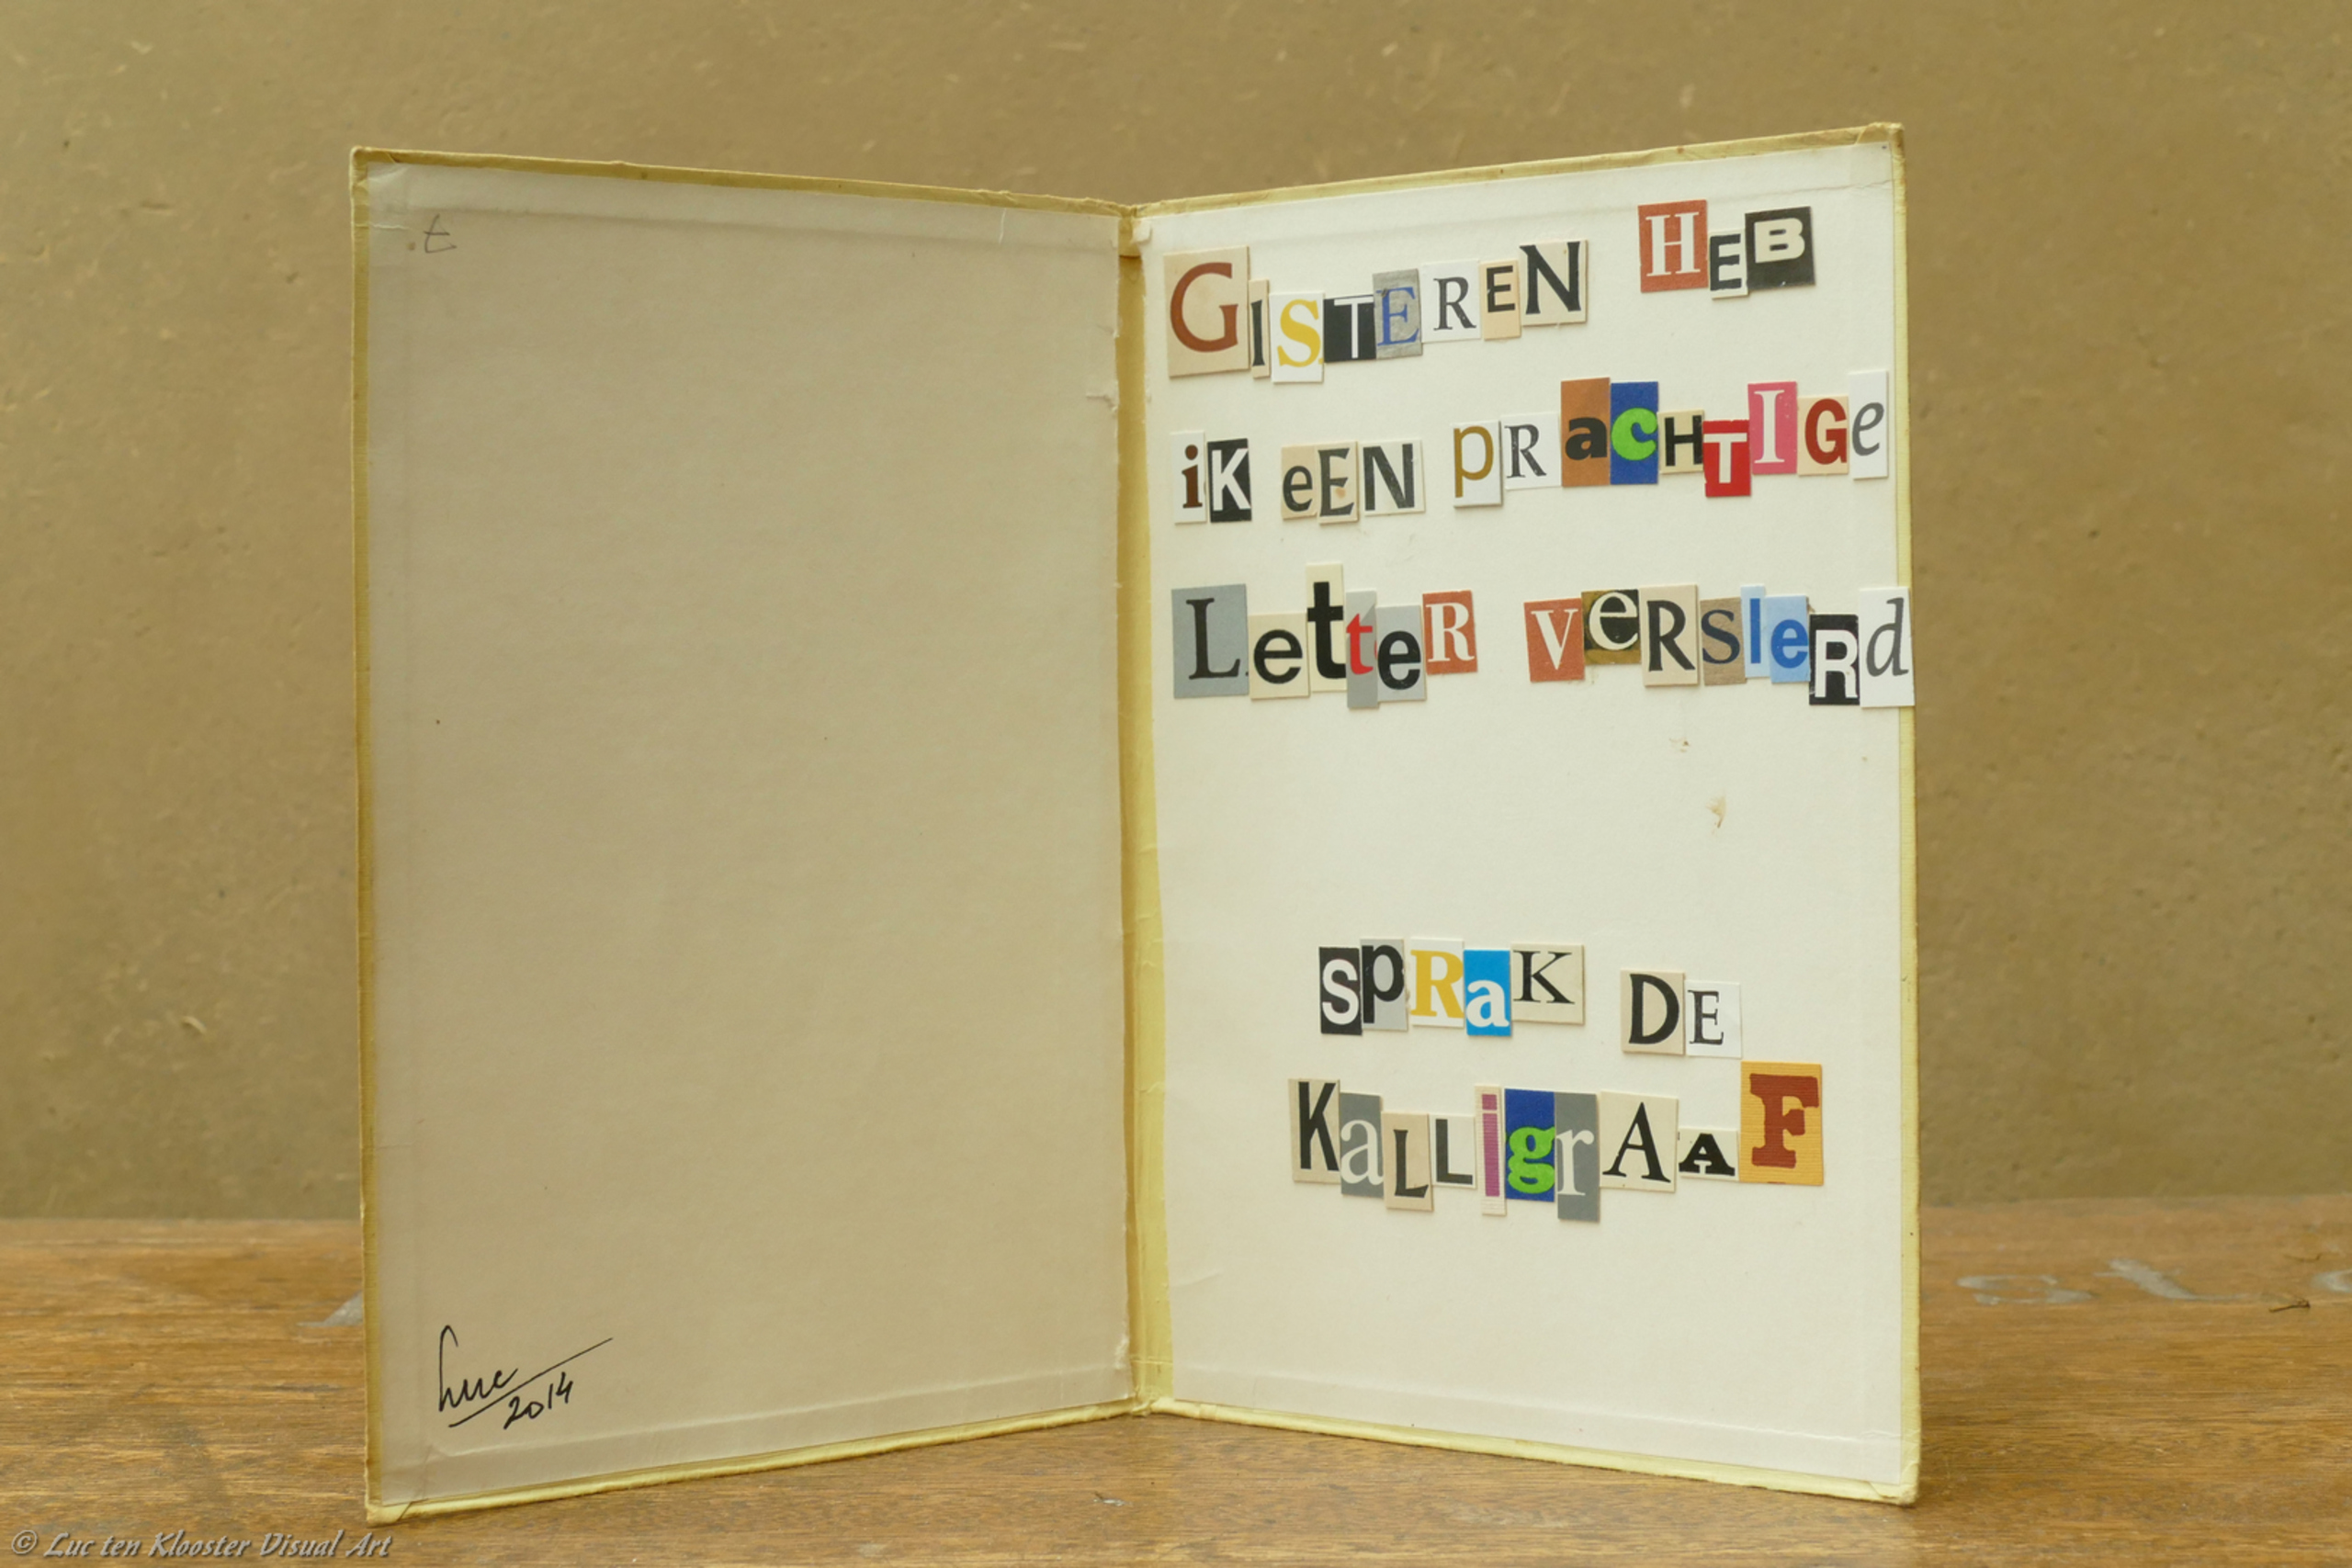 t.
Luc
2014
GISTEREN HEB
iK eEN pRacHTIGe
LetteR VeRsleRd
spRaK DE
KaLLigrAAF
© Luc ten Klooster Visual Art